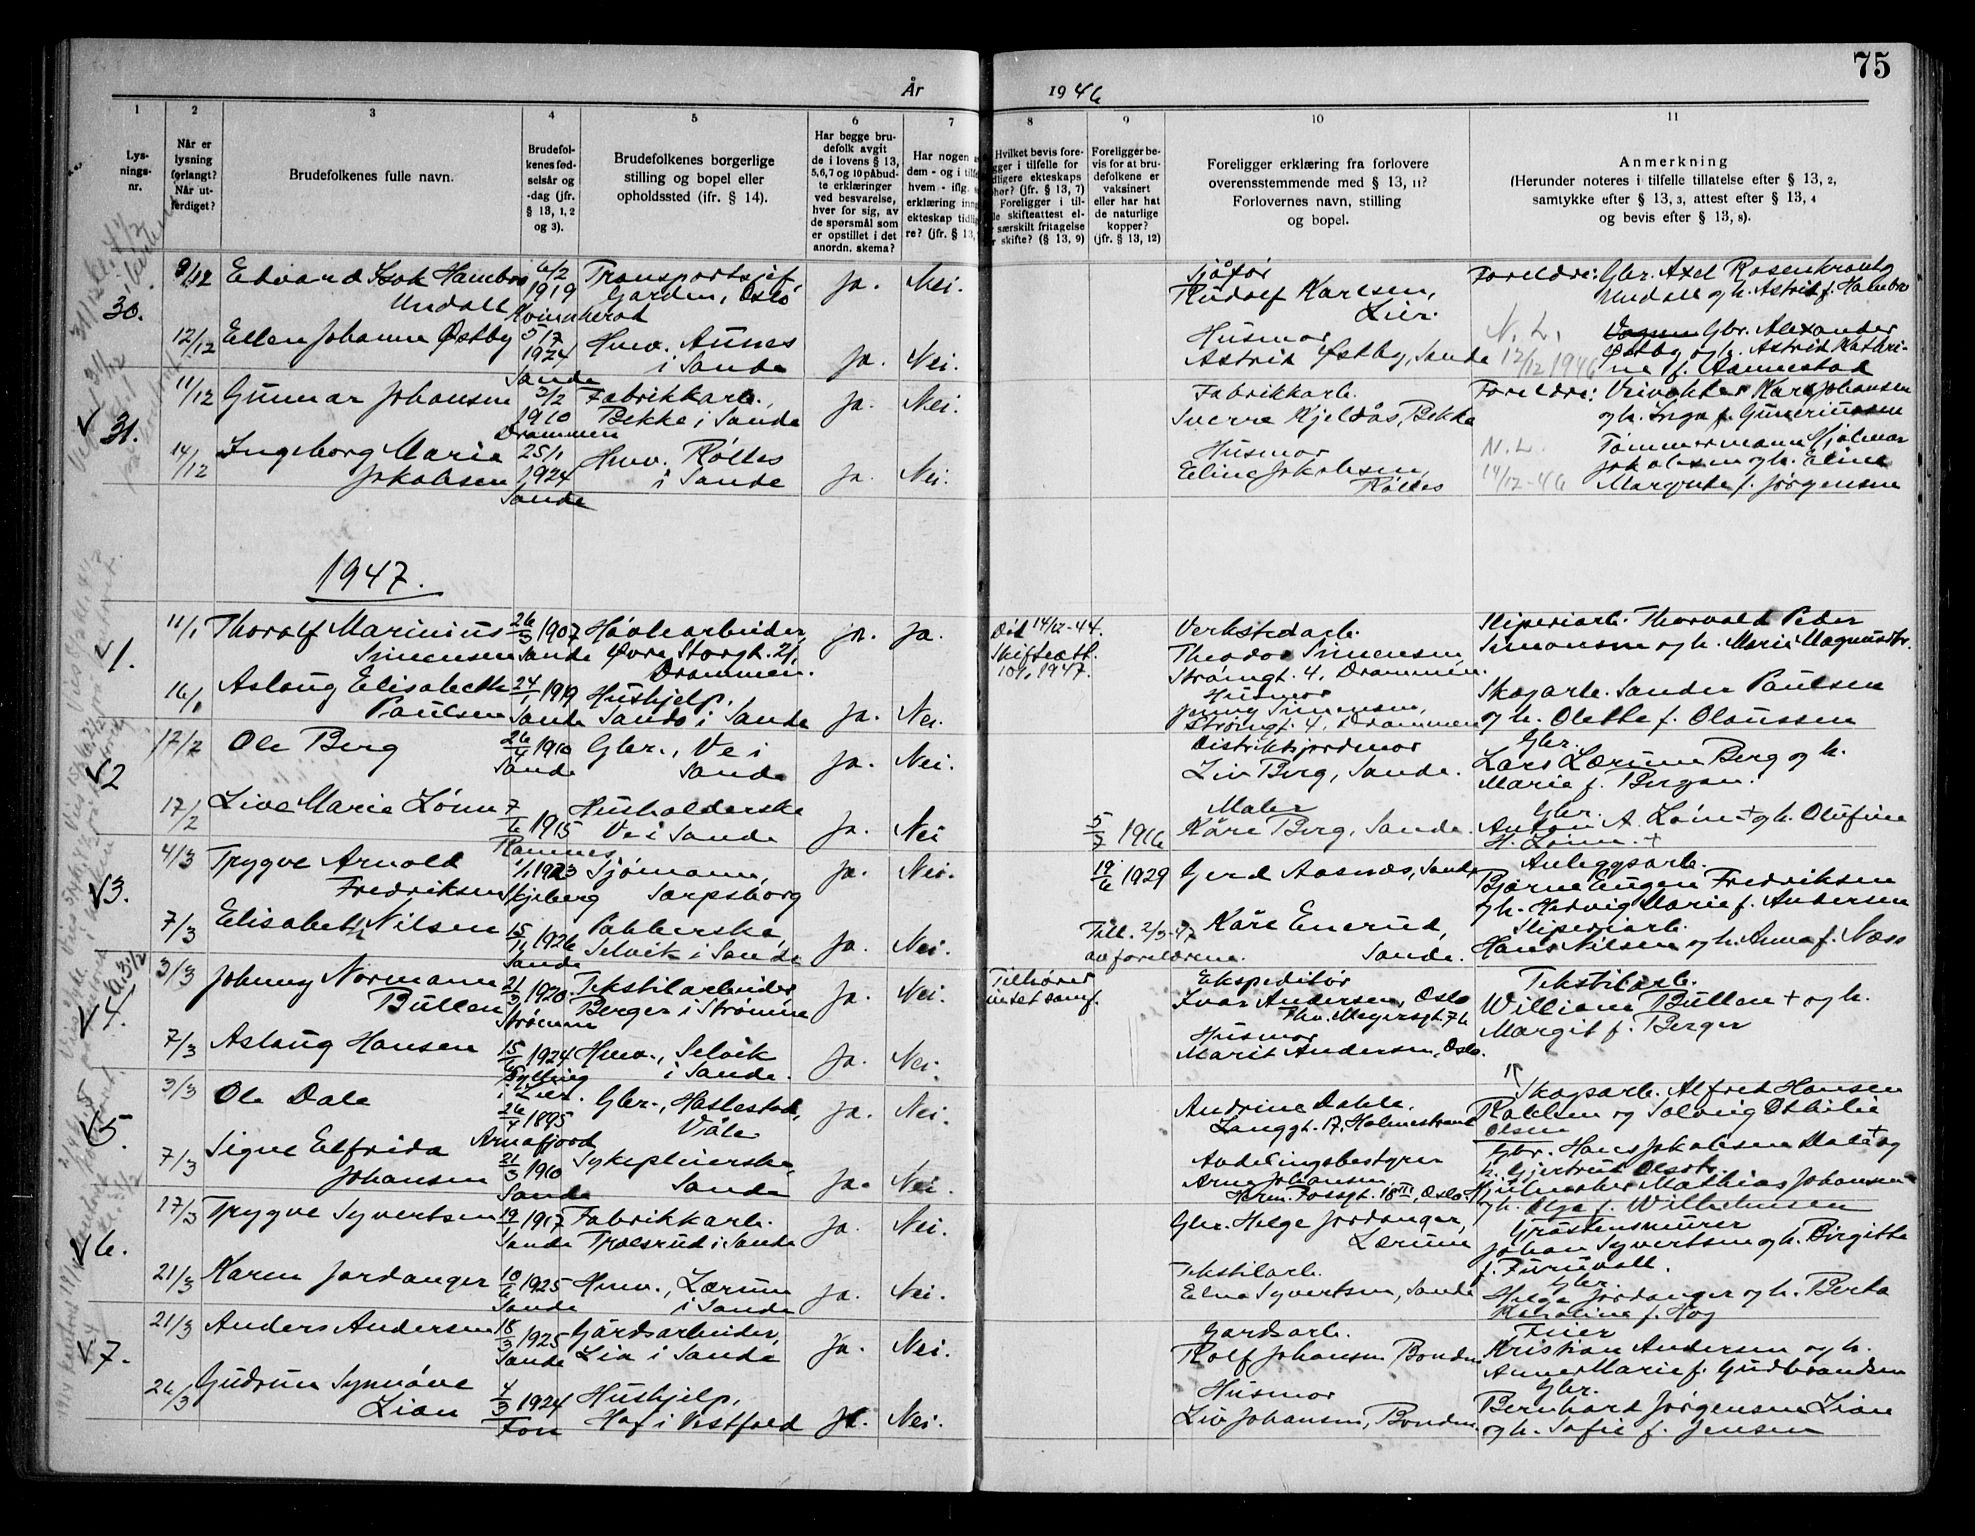 75
År 1946
1 2 3 4 5 6 7 8 9 10 11
Lys-
nings-
nr.
Når er
lysning
forlangt?
Når ut-
ferdiget?
Brudefolkenes fulle navn.
Brudefol-
kenes fød-
selsår og
-dag (jfr.
§ 13, 1, 2
og 3).
Brudefolkenes borgerlige
stilling og bopel eller
opholdssted (ifr. § 14).
Har begge bru-
defolk avgit
de i lovens § 13,
5, 6, 7 og 10 påbud-
te erklæringer
ved besvarelse,
hver for sig, av
de spørsmål som
er opstillet i det
anordn. skema?
Har nogen
dem - og i
hvem - iflg.
erklæring
ekteskap
re? (jfr. § 13,
Hvilket bevis fore-
gger i tilfelle for
dligere ekteskaps
phør? (jfr. § 13, 7)
Foreligger i til-
le skifteattest el-
r særskilt fritagelse
r skifte? (§ 13, 9)
Foreligger be-
vis for at bru-
defolkene er
vaksinert
eller har hat
de naturlige
kopper?
(jfr. § 13, 12)
Foreligger erklæring fra forlovere
overensstemmende med § 13, 11?
Forlovernes navn, stilling
og bopel.
Anmerkning
(Herunder noteres i tilfelle tillatelse efter § 13, 2,
samtykke efter § 13, 3, attest efter § 13, 4
og bevis efter § 13, 8).
30. 9/12 Edvard Isak Hambro
Undall
6/2
1919
Kvinnherad
Transportsjef,
Garden, Oslo
Ja. Nei.
Sjåfør
Rudolf Karlsen,
Lier.
Foreldre: Gbr. Axel Rosenkrantz
Undall og h. Astrid f. Hambro
12/12 Ellen Johanne Østby
5/7
1924
Sande
Hmv. Aunes
i Sande
Ja. Nei.
Husmor
Astrid Østby, Sande
N. L.
12/12 1946
Gbr. Alexander
Østby og h. Astrid Kathri-
ne f.
31. 11/12 Gunnar Johansen
2/2
1910
Drammen
Fabrikkarb.,
Bekke i Sande
Ja. Nei.
Fabrikkarb.
Sverre Kjeldås, Bekke
Foreldre: Veivokter Karl Johansen
og h. Inga f. Gunneriussen
14/12 Ingeborg Marie
Jakobsen
25/1
1924
Sande
Hmv. Røltes
i Sande
Ja. Nei.
Husmor
Eline Jakobsen,
Røltes
N. L.
14/12-46
Tømmermann Hjalmar
Jakobsen og h. Eline
Margrete f. Jørgensen
1947.
1. 11/1 Thoralf Marinius
Simensen
26/3 1907
Sande
Høvlearbeider,
Øvre Storgt. 21,
Drammen.
Ja. Ja.
Død 14/12-44.
Skifteatt.
10/1 1947.
Verkstedarb.
Theodor Simensen,
Strømgt. 4, Drammen.
Sliperiarb. Thorvald Peder
Simonsen og h. Marie Magnusdtr.
16/1 Aslaug Elisabeth
Paulsen
24/1 1919
Sande
Hushjelp.
Sande i Sande
Ja. Nei.
Husmor
Jenny Simensen,
Strømgt. 4, Drammen
Skogarb. Sander Paulsen
og h. Olette f. Olaussen
2 12/2 Ole Berg
26/4 1910
Sande
Gbr., Ve i
Sande
Ja. Nei.
Distriktsjordmor
Liv Berg, Sande.
Gbr.
Lars Lærum Berg og h.
Marie f. Bergan.
17/2 Live Marie Lønn
7/6 1915
Ramnes
Husholderske
Ve i Sande
Ja. Nei
5/3 1916
Maler
Kåre Berg, Sande
Gbr.
Anton A. Lønn + og h. Olufine
H. Lønn. +
3. 4/3 Trygve Arnold
Fredriksen
1/1 1923
Skjeberg
Sjømann,
Sarpsborg
Ja. Nei.
19/6 1929
Gerd Aasnæs, Sande
Anleggsarb.
Bjarne Eugen Fredriksen
og h. Hedvig Marie f. Andersen
7/3 Elisabeth Nilsen
15/11 1926
Sande
Pakkerske,
Selvik i Sande
Ja. Nei.
Till. 2/3-47
av foreldrene.
Kåre Enerud,
Sande.
Sliperiarb.
Hans Nilsen og h. Anna f. Næss
4. 3/3 Johnny Normann
Bullen
21/3 1920
Strømm
Tekstilarbeider
Berger i Strømm
Ja. Nei.
Tilhører
intet samf.
Ekspeditør
Ivar Andersen, Oslo
Thv. Meyersgt. 76
Tekstilarb.
William Bullen + og h.
Margit f. Berger
7/3 Aslaug Hansen
15/6 1924
Sylling
i Lier.
Hmv., Selvik
i Sande.
Ja. Nei.
Husmor
Marit Andersen, Oslo.
Skogsarb. Alfred Hansen
Rabben og Solveig Othilie
Olsen
5. 3/3 Ole Dale
26/4 1895
Arnafjord
Gbr., Haslestad,
Våle
Ja. Nei.
Andrine Dahle,
Langgt. 17, Holmestrand
Gbr. Hans Jakobsen Dale + og
h. Gjertrud Olsdtr.
7/3 Signe Elfrida
Johansen
21/3 1910
Sande
Sykepleierske,
Sande
Ja. Nei.
Avdelingsbestyrer
Arne Johansen
Herm. Fossgt. 18 III, Oslo.
Mathias Johansen
og h. Olga f. Wilhelmsen
6. 17/3 Trygve Syvertsen
19/1 1917
Sande
Fabrikkarb.
Trolsrud i Sande
Ja. Nei.
Gbr. Helge Jordanger,
Lærum
Gråstensmurer
Johan Syvertsen og h. Birgitte
f. Furuvall.
21/3 Karen Jordanger
10/6 1925
Sande
Hmv., Lærum
i Sande
Ja. Nei.
Tekstilarb.
Elna Syvertsen, Sande
Gbr.
Helge Jordanger og h. Berta
f. Hog
7. 21/3 Anders Andersen
18/3 1925
Sande
Gårdsarbeider,
Lia i Sande
Ja. Nei.
Gårdsarb.
Rolf Johansen Bonden
Feier
Kristian Andersen og h.
Anne Marie f. Gudbrandsen
26/3 Gudrun Synnøve
Lian
4/3 1924
Fon
Hushjelp,
Hof i Vestfold
Ja. Nei.
Husmor
Liv Johansen, Bonden
Gbr.
Bernhard Jørgensen Lian
og h. Sofie f. Jensen